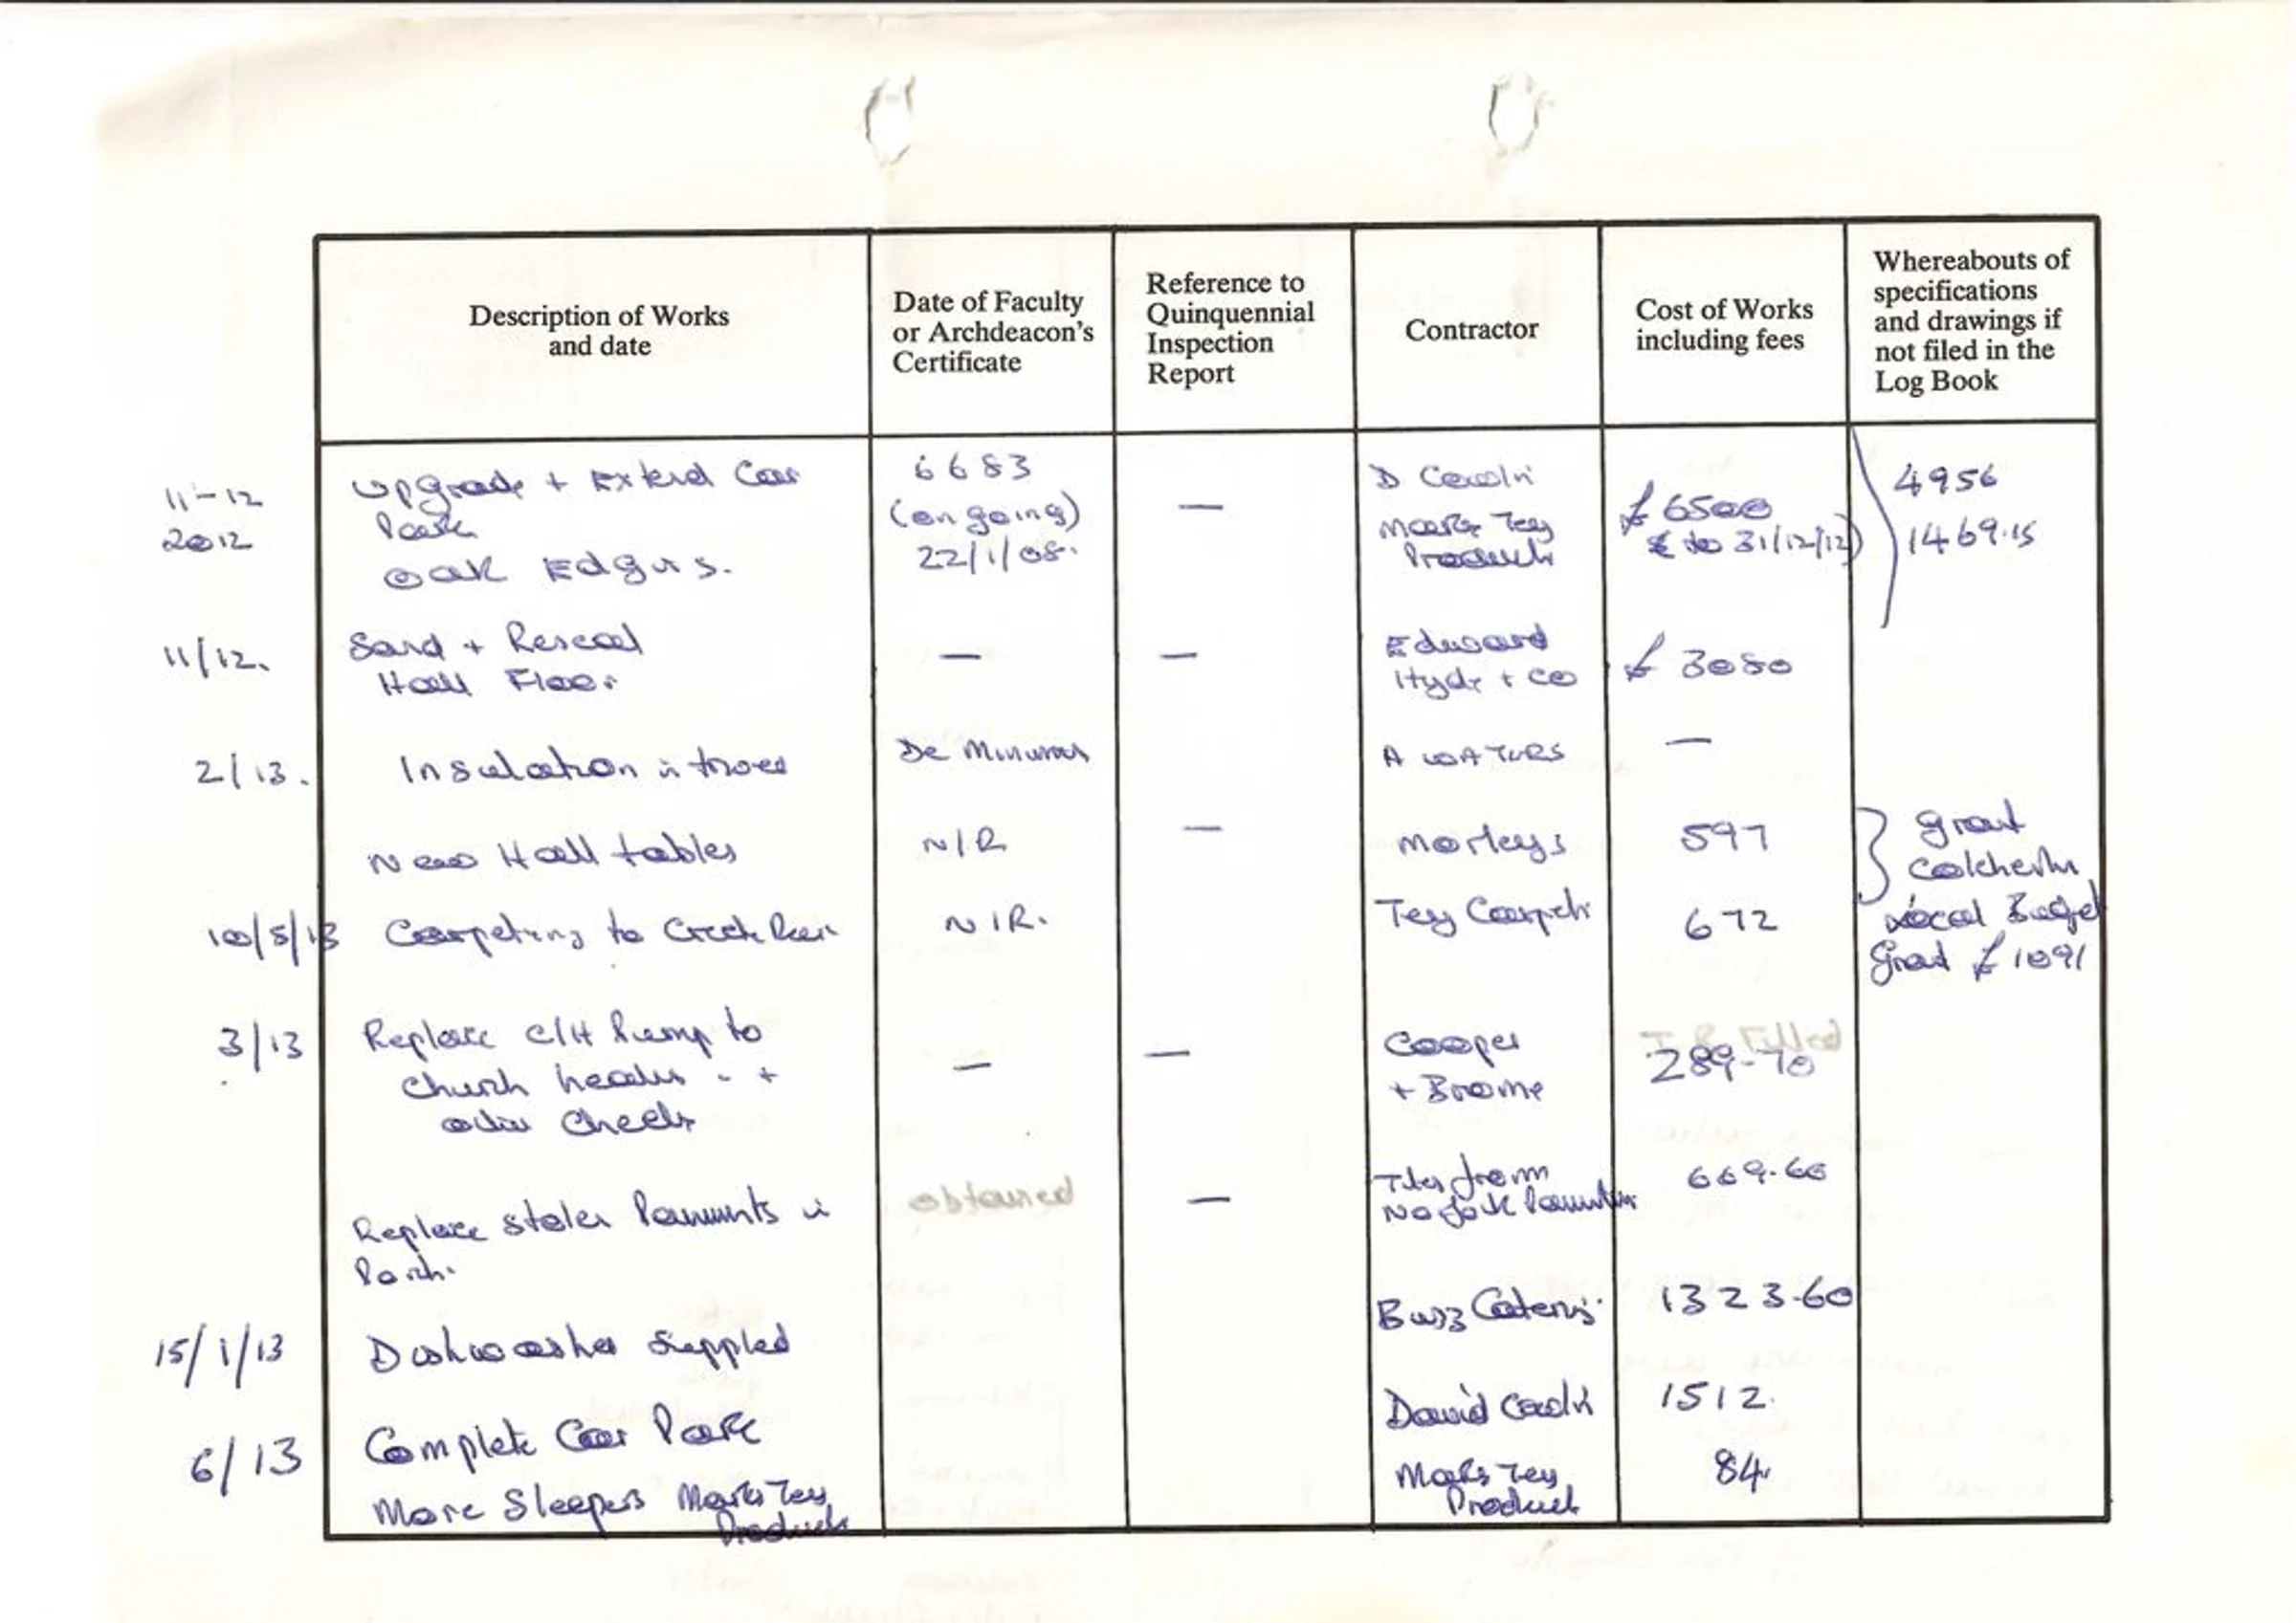 Description of Works
and date
Date of Faculty
or Archdeacon's
Certificate
Reference to
Quinquennial
Inspection
Report
Contractor
Cost of Works
including fees
Whereabouts of
specifications
and drawings if
not filed in the
Log Book
11-12
2012
Upgrade + Extend Car
Park
Oak Edgers.
6683
(ongoing)
22/1/08.
—
D
Marks Tey
Products
£6500
to 31/12/12)
4956
1469.15
11/12.
Sand + Reseal
Hall Floor
—
—
Edward
Hyde + Co
£ 3080
2/13.
Insulation in tower
De Minimis
A WATERS
—
New Hall tables
N/R
—
Morleys
597
grant
Colchester
Local Budget
Grant £1091
10/5/13
Carpeting to
N/R.
Tey Carpets
672
3/13
Replace C/H Pump to
Church heater - +
other checks
—
—
Cooper
+ Broome
289-70
Replace stolen Pamments in
Porch.
obtained
—
Tiles from
Norfolk Pamments
669.60
15/1/13
Dishwasher Supplied
Buzz Catering
1323-60
6/13
Complete Car Park
David
1512.
More Sleepers Marks Tey
Products
Marks Tey
Products
84